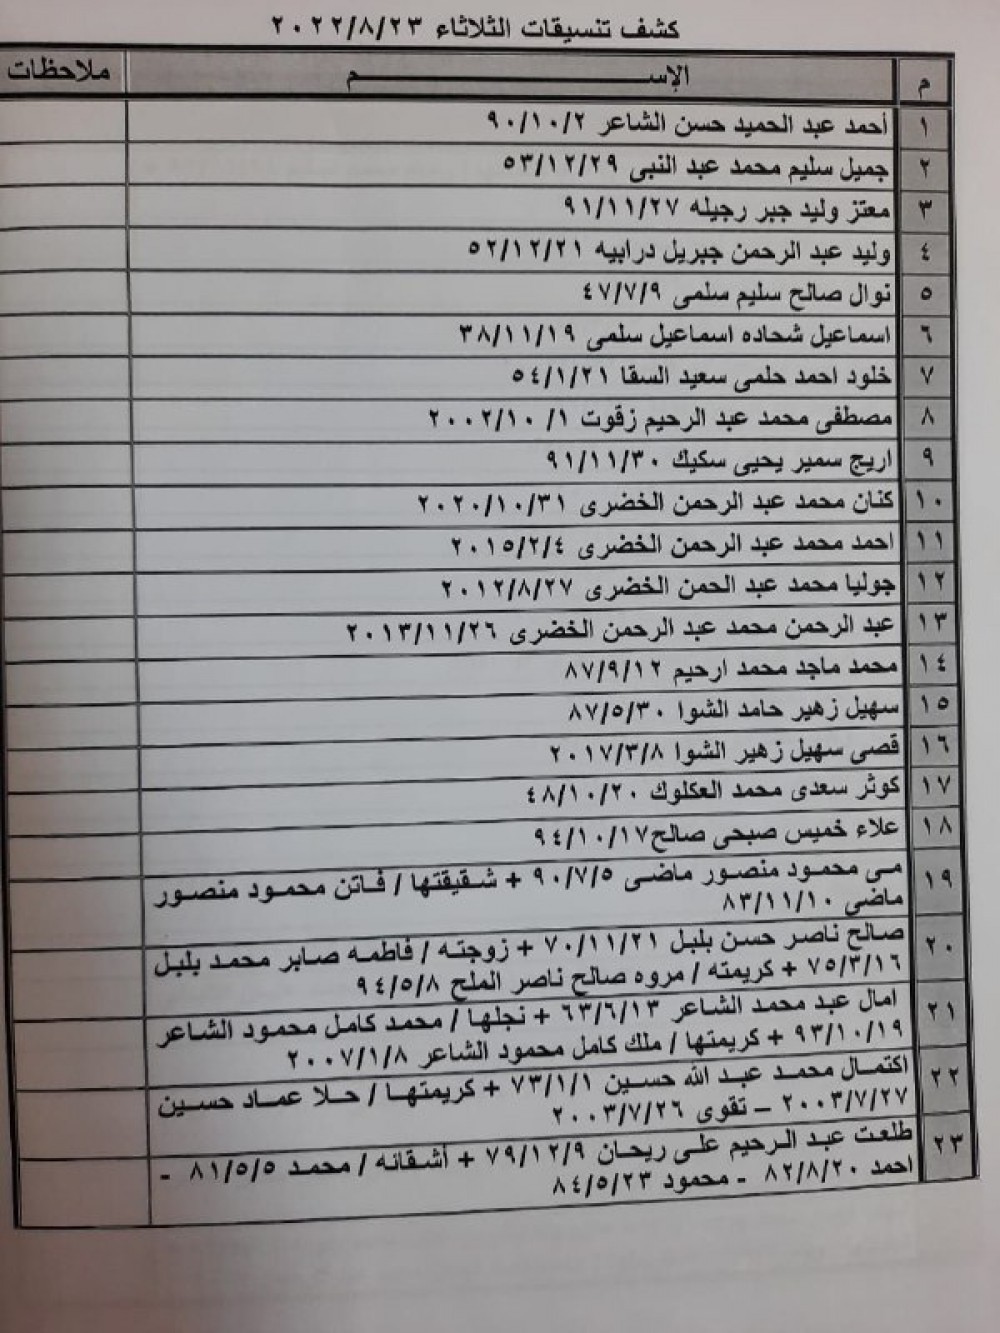 كشف تنسيقات الثلاثاء ٢٠٢٢/٨/٢٣
م الإســــــــم ملاحظات
١ أحمد عبد الحميد حسن الشاعر ٩٠/١٠/٢
٢ جميل سليم محمد عبد النبى ٥٣/١٢/٢٩
٣ معتز وليد جبر رجيله ٩١/١١/٢٧
٤ وليد عبد الرحمن جبريل درابيه ٥٢/١٢/٢١
٥ نوال صالح سليم سلمى ٤٧/٧/٩
٦ اسماعيل شحاده اسماعيل سلمى ٣٨/١١/١٩
٧ خلود احمد حلمى سعيد السقا ٥٤/١/٢١
٨ مصطفى محمد عبد الرحيم زقوت ١/ ٢٠٠٢/١٠
٩ اريج سمير يحيى سكيك ٩١/١١/٣٠
١٠ كنان محمد عبد الرحمن الخضرى ٢٠٢٠/١٠/٣١
١١ احمد محمد عبد الرحمن الخضرى ٢٠١٥/٢/٤
١٢ جوليا محمد عبد الحمن الخضرى ٢٠١٢/٨/٢٧
١٣ عبد الرحمن محمد عبد الرحمن الخضرى ٢٠١٣/١١/٢٦
١٤ محمد ماجد محمد ارحيم ٨٧/٩/١٢
١٥ سهيل زهير حامد الشوا ٨٧/٥/٣٠
١٦ قصى سهيل زهير الشوا ٢٠١٧/٣/٨
١٧ كوثر سعدى محمد العكلوك ٤٨/١٠/٢٠
١٨ علاء خميس صبحى صالح٩٤/١٠/١٧
١٩ مى محمود منصور ماضى ٩٠/٧/٥ + شقيقتها / فاتن محمود منصور
ماضى ٨٣/١١/١٠
٢٠ صالح ناصر حسن بلبل ٧٠/١١/٢١ + زوجته / فاطمه صابر محمد بلبل
٧٥/٣/١٦ + كريمته / مروه صالح ناصر الملح ٩٤/٥/٨
٢١ امال عبد محمد الشاعر ٦٣/٦/١٣ + نجلها / محمد كامل محمود الشاعر
٩٣/١٠/١٩ + كريمتها / ملك كامل محمود الشاعر ٢٠٠٧/١/٨
٢٢ اكتمال محمد عبد الله حسين ٧٣/١/١ + كريمتها / حلا عماد حسين
٢٠٠٣/٧/٢٧ – تقوى ٢٠٠٣/٧/٢٦
٢٣ طلعت عبد الرحيم على ريحان ٧٩/١٢/٩ + أشقائه / محمد ٨١/٥/٥ -
احمد ٨٢/٨/٢٠ - محمود ٨٤/٥/٢٣